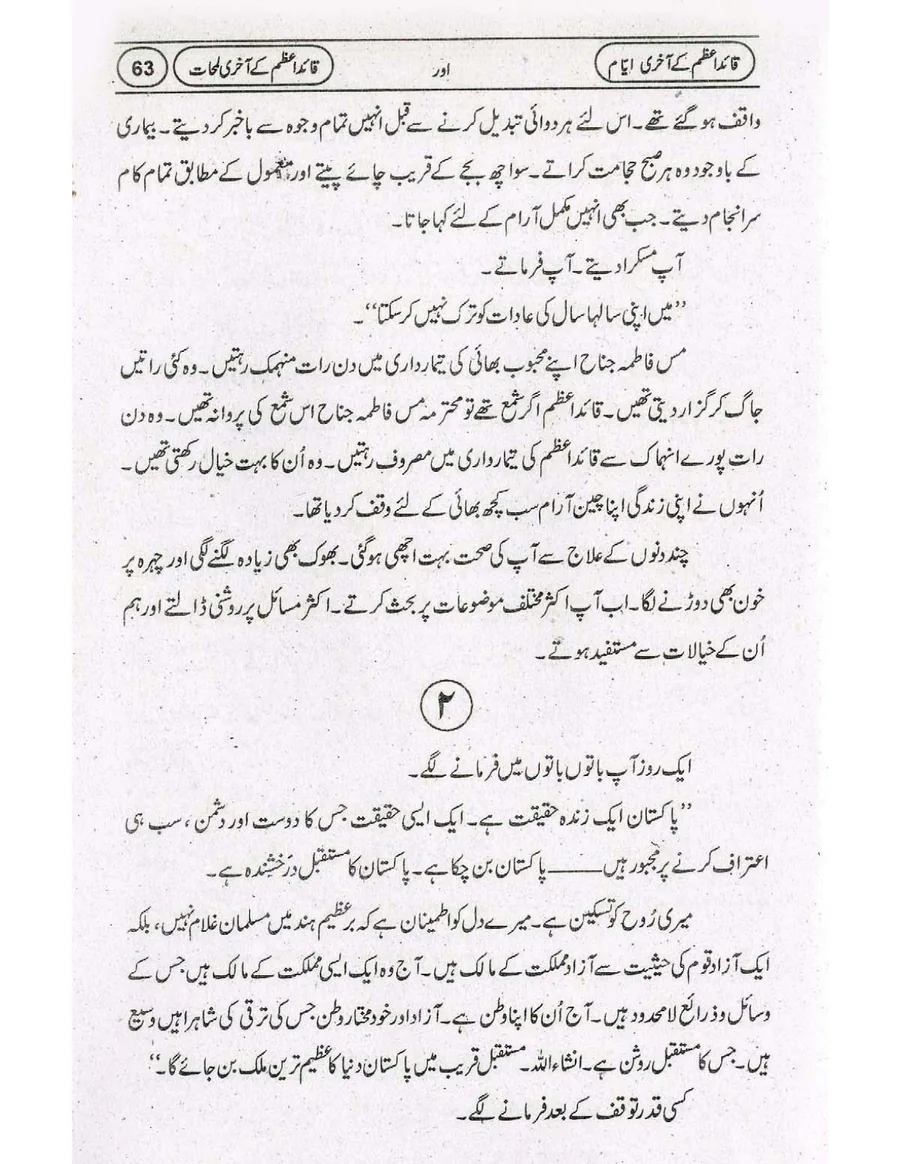 قائداعظم کے آخری ایام اور قائداعظم کے آخری لمحات 63
واقف ہو گئے تھے۔ اس لئے ہر دوائی تبدیل کرنے سے قبل انہیں تمام وجوہ سے باخبر کر دیتے۔ بیماری
کے باوجود وہ ہر صبح حجامت کراتے۔ سوا چھ بجے کے قریب چائے پیتے اور معمول کے مطابق تمام کام
سر انجام دیتے۔ جب بھی انہیں مکمل آرام کے لئے کہا جاتا۔
آپ مسکرا دیتے۔ آپ فرماتے۔
’’میں اپنی سالہا سال کی عادات کو ترک نہیں کر سکتا‘‘۔
مس فاطمہ جناح اپنے محبوب بھائی کی تیمارداری میں دن رات منہمک رہتیں۔ وہ کئی راتیں
جاگ کر گزار دیتی تھیں۔ قائداعظم اگر شمع تھے تو محترمہ مس فاطمہ جناح اس شمع کی پروانہ تھیں۔ وہ دن
رات پورے انہماک سے قائداعظم کی تیمارداری میں مصروف رہتیں۔ وہ اُن کا بہت خیال رکھتی تھیں۔
اُنہوں نے اپنی زندگی اپنا چین آرام سب کچھ بھائی کے لئے وقف کر دیا تھا۔
چند دنوں کے علاج سے آپ کی صحت بہت اچھی ہو گئی۔ بھوک بھی زیادہ لگنے لگی اور چہرہ پر
خون بھی دوڑنے لگا۔ اب آپ اکثر مختلف موضوعات پر بحث کرتے۔ اکثر مسائل پر روشنی ڈالتے اور ہم
اُن کے خیالات سے مستفید ہوتے۔
۲
ایک روز آپ باتوں باتوں میں فرمانے لگے۔
’’پاکستان ایک زندہ حقیقت ہے۔ ایک ایسی حقیقت جس کا دوست اور دشمن، سب ہی
اعتراف کرنے پر مجبور ہیں ــــــ پاکستان بن چکا ہے۔ پاکستان کا مستقبل درخشندہ ہے۔
میری رُوح کو تسکین ہے۔ میرے دل کو اطمینان ہے کہ برعظیم ہند میں مسلمان غلام نہیں، بلکہ
ایک آزاد قوم کی حیثیت سے آزاد مملکت کے مالک ہیں۔ آج وہ ایک ایسی مملکت کے مالک ہیں جس کے
وسائل و ذرائع لامحدود ہیں۔ آج اُن کا اپنا وطن ہے۔ آزاد اور خود مختار وطن جس کی ترقی کی شاہراہیں وسیع
ہیں۔ جس کا مستقبل روشن ہے۔ انشاء اللہ۔ مستقبل قریب میں پاکستان دنیا کا عظیم ترین ملک بن جائے گا۔‘‘
کسی قدر توقف کے بعد فرمانے لگے۔